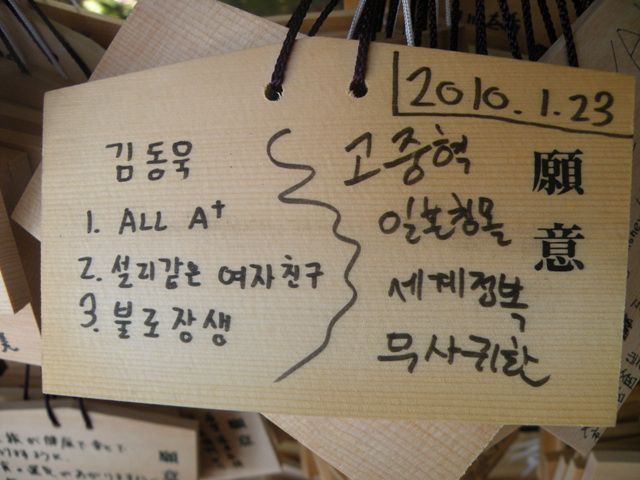 2010.1.23
願意
김동욱
1. ALL A+
2. 설리같은 여자친구
3. 불로장생
고중혁
일본침몰
세계정복
무사귀환
願意
願意